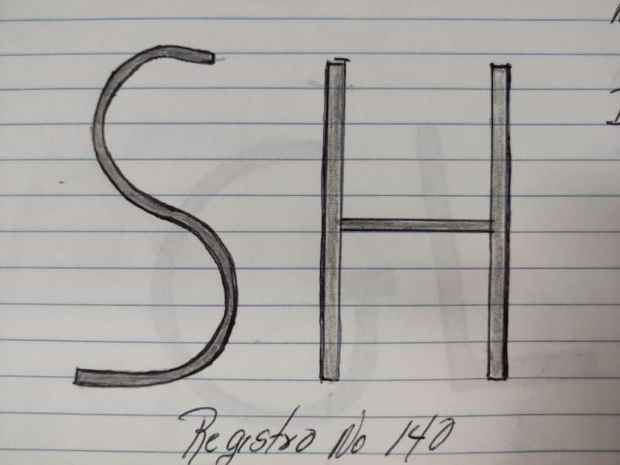 SH
Registro No 140